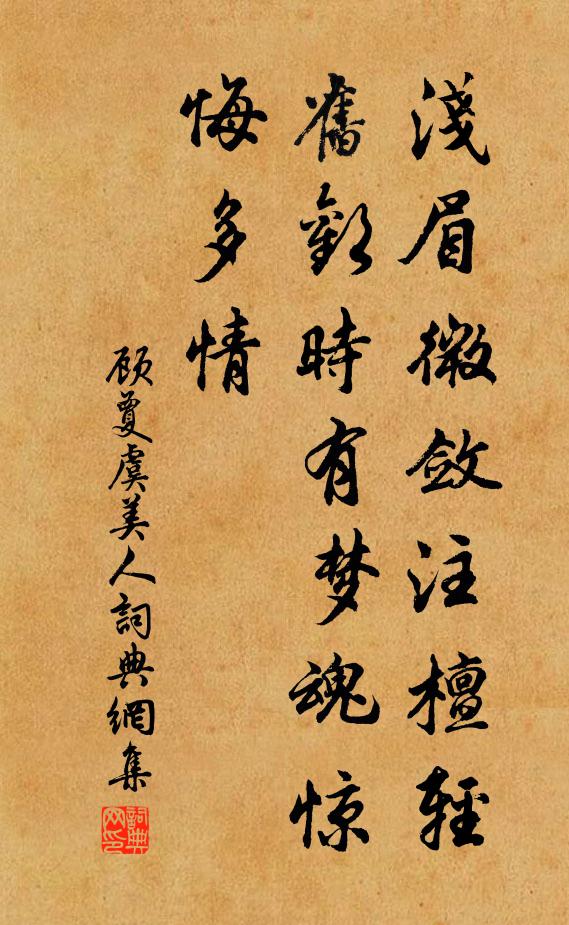 淺眉微斂注檀輕
舊歡時有梦魂惊
悔多情
顾夐虞美人詞典網集
詞典网印